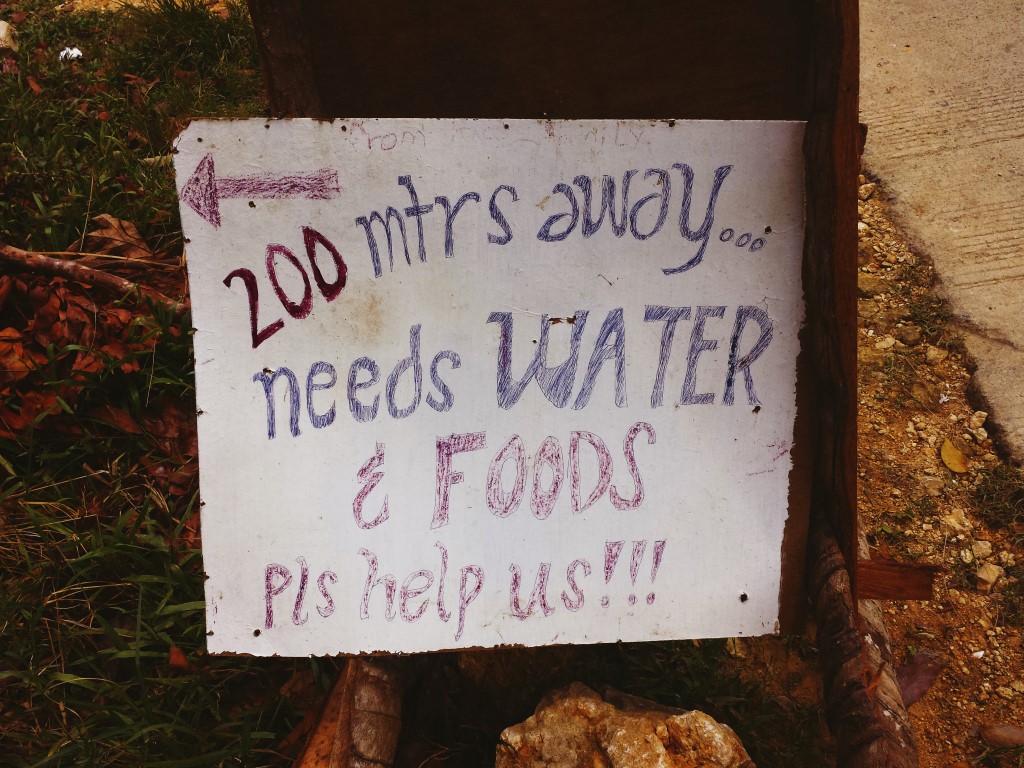 From
200 mtrs away...
needs WATER
& FOODS
pls help us!!!